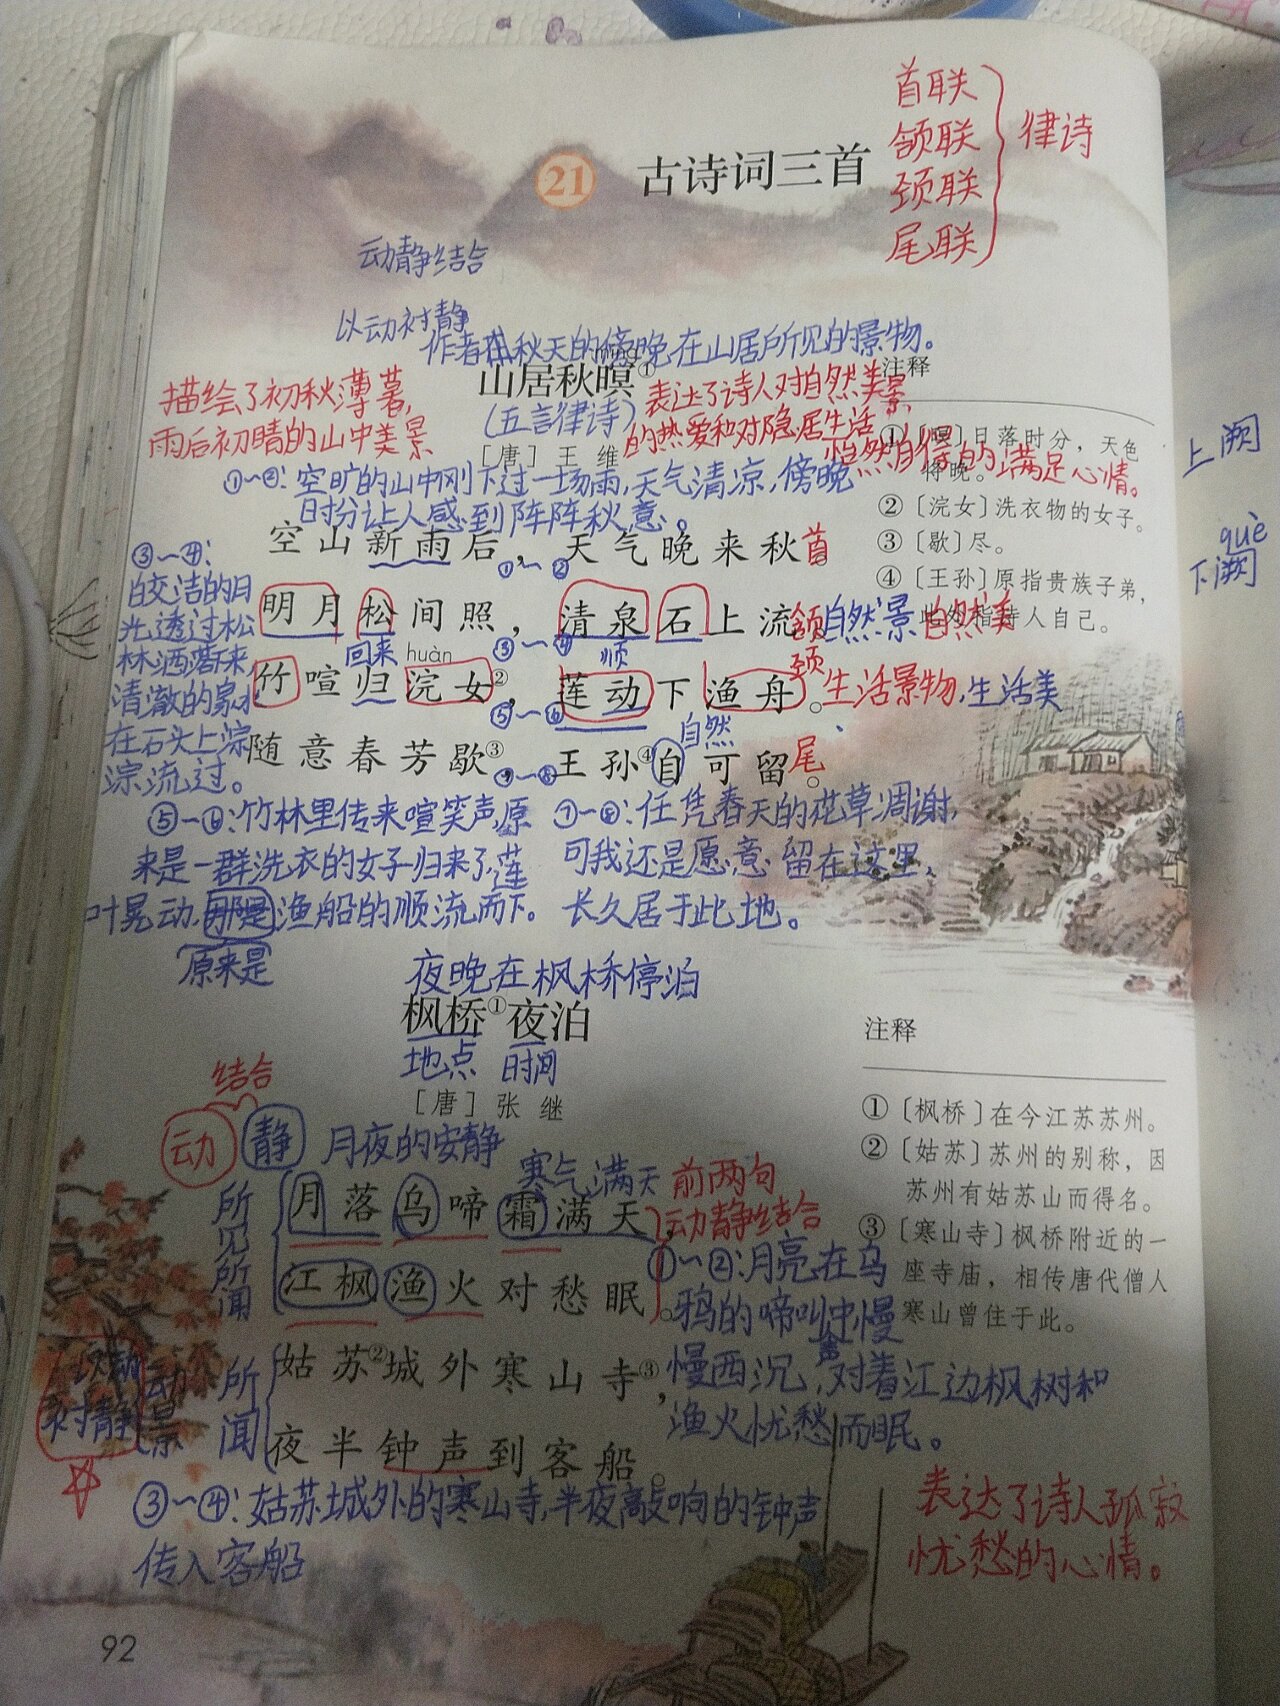 首联
颔联
颈联
尾联
律诗
21 古诗词三首
动静结合
以动衬静
作者在秋天的傍晚在山居所见的景物。
míng
山居秋暝①
(五言律诗)
[唐] 王 维
描绘了初秋薄暮,
雨后初晴的山中美景
表达了诗人对自然美景
的热爱和对隐居生活
怡然自得的满足心情。
注释
①〔暝〕日落时分，天色
将晚。
②〔浣女〕洗衣物的女子。
③〔歇〕尽。
④〔王孙〕原指贵族子弟，
此处指诗人自己。
上阙
què
下阙
①~②:空旷的山中刚下过一场雨,天气清凉,傍晚
时分让人感到阵阵秋意。
空山新雨后，天气晚来秋
首
①~②
③~④:
皎洁的月
光透过松
林洒落下来,
清澈的泉水
在石头上淙
淙流过。
明月松间照，清泉石上流
颔 自然景 自然美
回来 huàn ③~④ 顺
竹喧归浣女②，莲动下渔舟。
颈 生活景物,生活美
⑤~⑥ 自然
随意春芳歇③，王孙④自可留。
尾
⑦~⑧
⑤~⑥:竹林里传来喧笑声,原
来是一群洗衣的女子归来了,莲
叶晃动,那是渔船的顺流而下。
原来是
⑦~⑧:任凭春天的花草凋谢,
可我还是愿意留在这里,
长久居于此地。
夜晚在枫桥停泊
枫桥①夜泊
地点 时间
[唐] 张 继
结合
动 静 月夜的安静
寒气满天
前两句
动静结合
所见所闻
月落乌啼霜满天，
江枫渔火对愁眠。
①~②:月亮在乌
鸦的啼叫声中慢
慢西沉,对着江边枫树和
渔火忧愁而眠。
注释
①〔枫桥〕在今江苏苏州。
②〔姑苏〕苏州的别称，因
苏州有姑苏山而得名。
③〔寒山寺〕枫桥附近的一
座寺庙，相传唐代僧人
寒山曾住于此。
以动
衬静
动景
所闻
姑苏②城外寒山寺③，
夜半钟声到客船。
③~④:姑苏城外的寒山寺,半夜敲响的钟声
传入客船
表达了诗人孤寂
忧愁的心情。
92